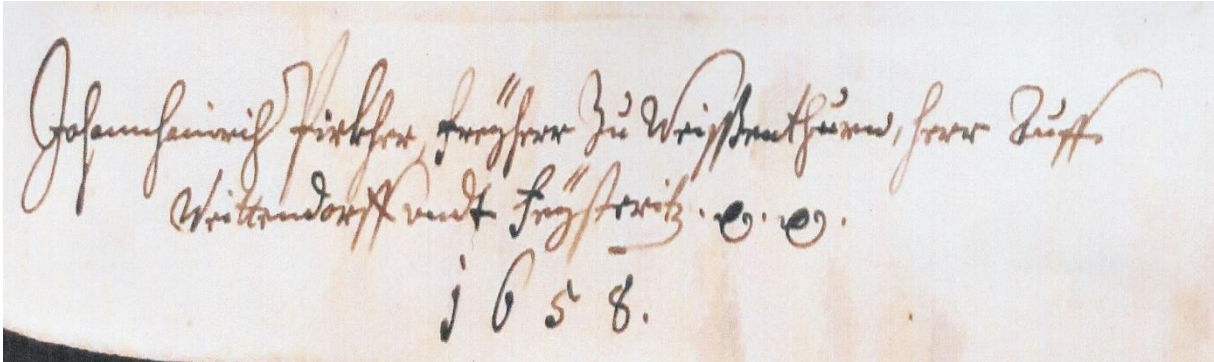 Johannhainrich Pirkher, Freÿherr Zu Weissenthurn, herr Auff
Weittendorff vndt Feÿstritz. &. &.
1658.